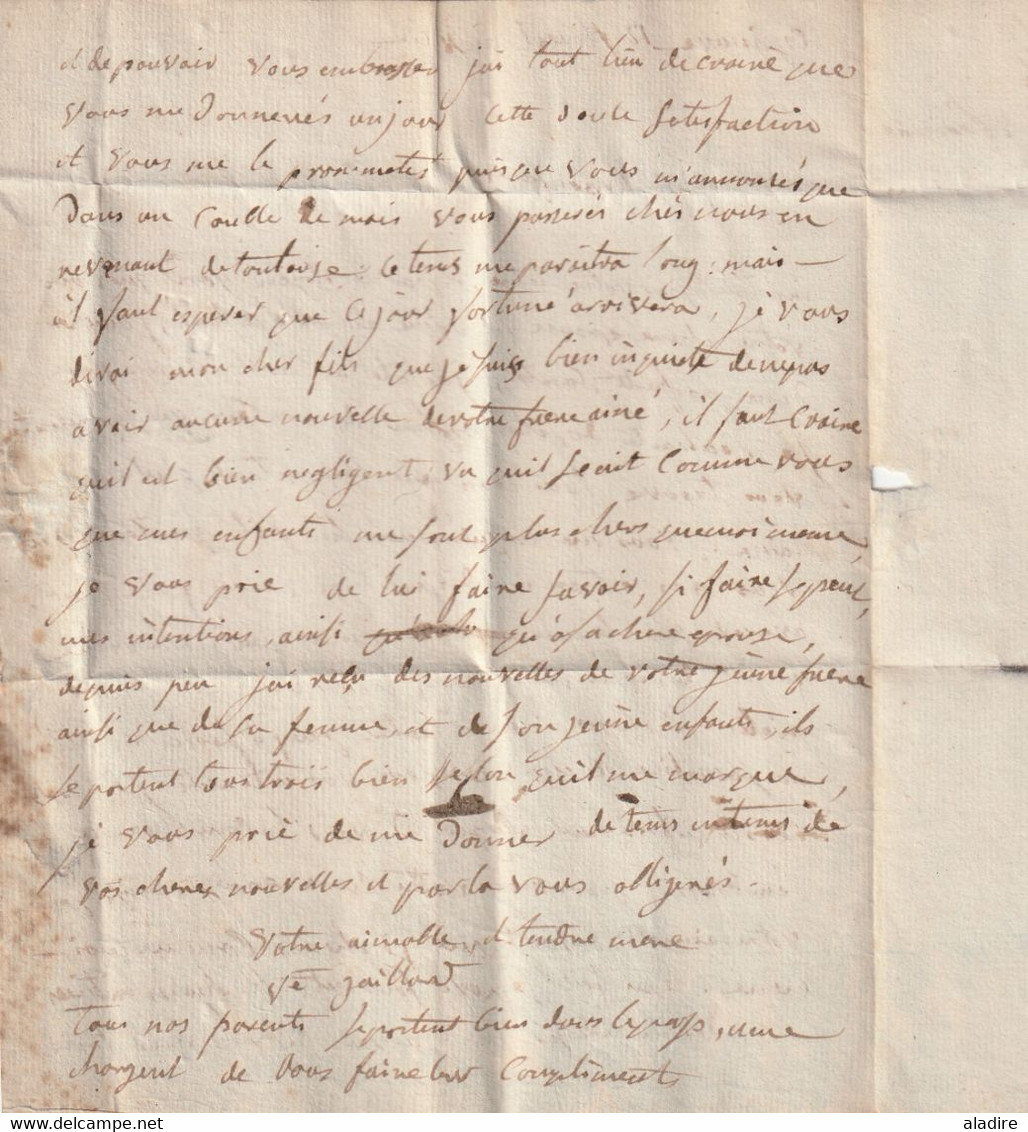 et de pouvoir vous embrasser jai tout lieu de croire que
vous me donnerés un jour cette douce satisfaction
et vous me le promettés puisque vous m'annoncés que
dans un couple de mois vous passerés chés nous en
revenant de toulouse, ce tems me paroitra long, mais
il faut esperer que ce jour fortuné arrivera, je vous
dirai mon cher fils que je suis bien inquiete de ne pas
avoir aucune nouvelle de votre frere ainé, il faut croire
quil est bien negligent, vu quil scait comme vous
que mes enfants me sont plus chers que moi meme,
je vous prie de lui faire savoir, si faire se peut,
mes intentions, ainsi qu'a sa chere epouse,
depuis peu jai reçu des nouvelles de votre jeune frere
ainsi que de sa femme, et de son jeune enfants, ils
se portent tous trois bien selon quil me marque,
je vous prie de me donner de tems en tems de
vos cheres nouvelles et par la vous obligerés
votre aimable et tendre mere
ve jaillard
tous nos parents se portent bien dans le pays, me
chargent de vous faire leur compliments
aladire